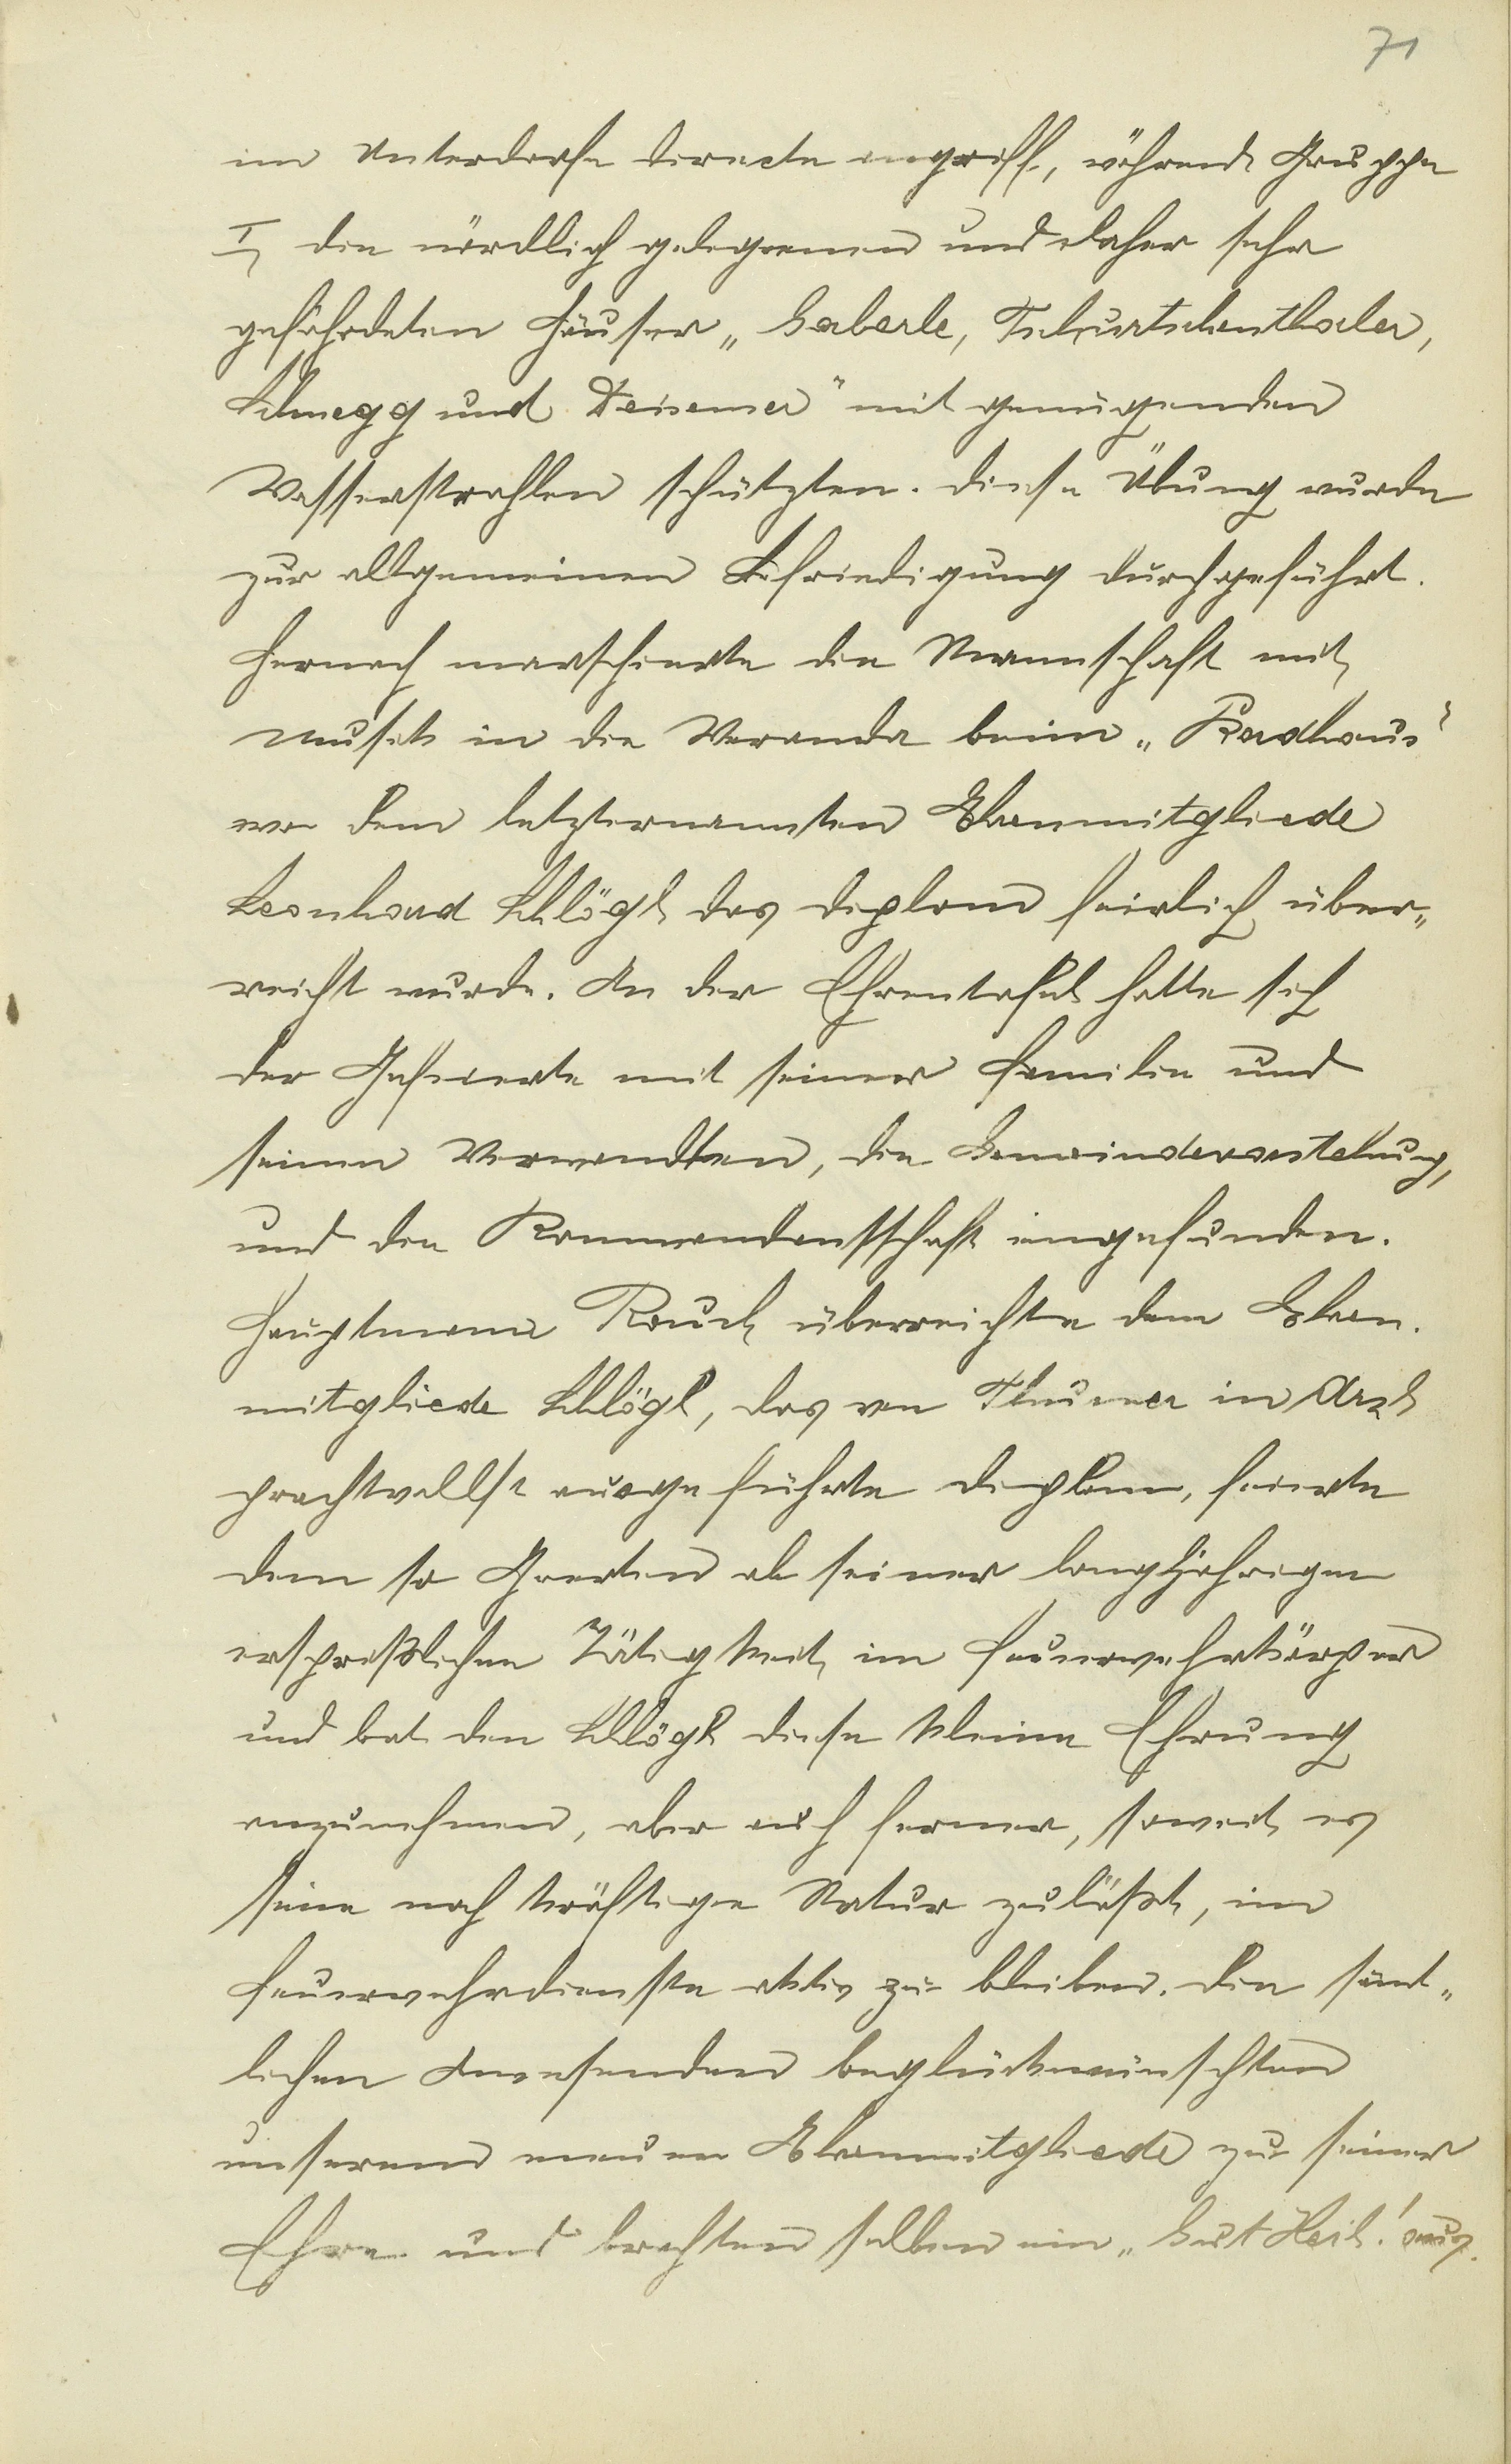 71
im Unterdorfe directe angriff, während Gruppe
I, die nördlich gelegenen und daher sehr
gefährdeten Häuser „Gaberle, Tschurtschenthaler,
Schnegg und Deisemer" mit genügenden
Wasserstrahlen schützten. Diese Übung wurde
zur allgemeinen Befriedigung durchgeführt.
Hernach marschierte die Mannschaft mit
Musik in die Veranda beim „Badhaus"
wo dem letzternannten Ehrenmitgliede
Leonhard Schlögl das Diplom feirlich über„
reicht wurde. An der Ehrentafel hatte sich
der Gefeierte mit seiner Familie und
seinen Verwandten, die Gemeindevorstehung,
und die Kommandantschaft eingefunden.
Hauptmann Rauch überreichte dem Ehren.
mitgliede Schlögl, das von Thurner in Arzl
prachtvollst ausgeführte Diplom, feierte
dem so Geerten ob seiner langjährigen
ersprießlichen Tätigkeit im Feuerwehrkörper
und bat den Schlögl diese kleine Ehrung
anzunehmen, aber auch ferner, soweit es
seine noch kräftige Natur zuläßt, im
Feuerwehrdienste aktiv zu bleiben. Die sämt„
lichen Anwesenden beglückwünschten
unserem neuen Ehrenmitgliede zu seiner
Ehre und brachten selben ein „Gut Heil! aus.